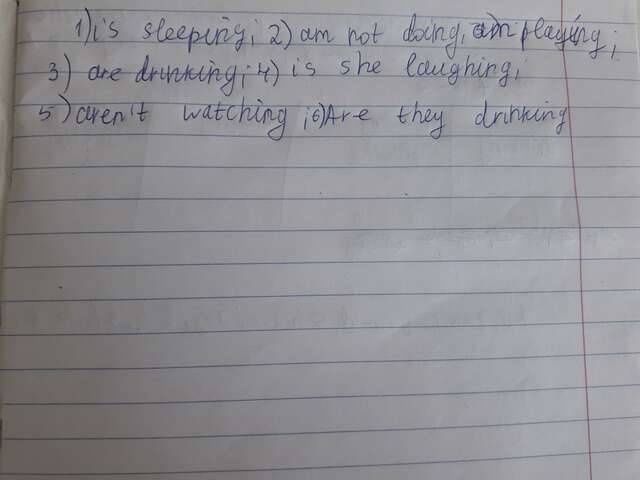 1) is sleeping; 2) am not doing, am playing;
3) are drinking; 4) is she laughing;
5) aren't watching; 6) Are they drinking